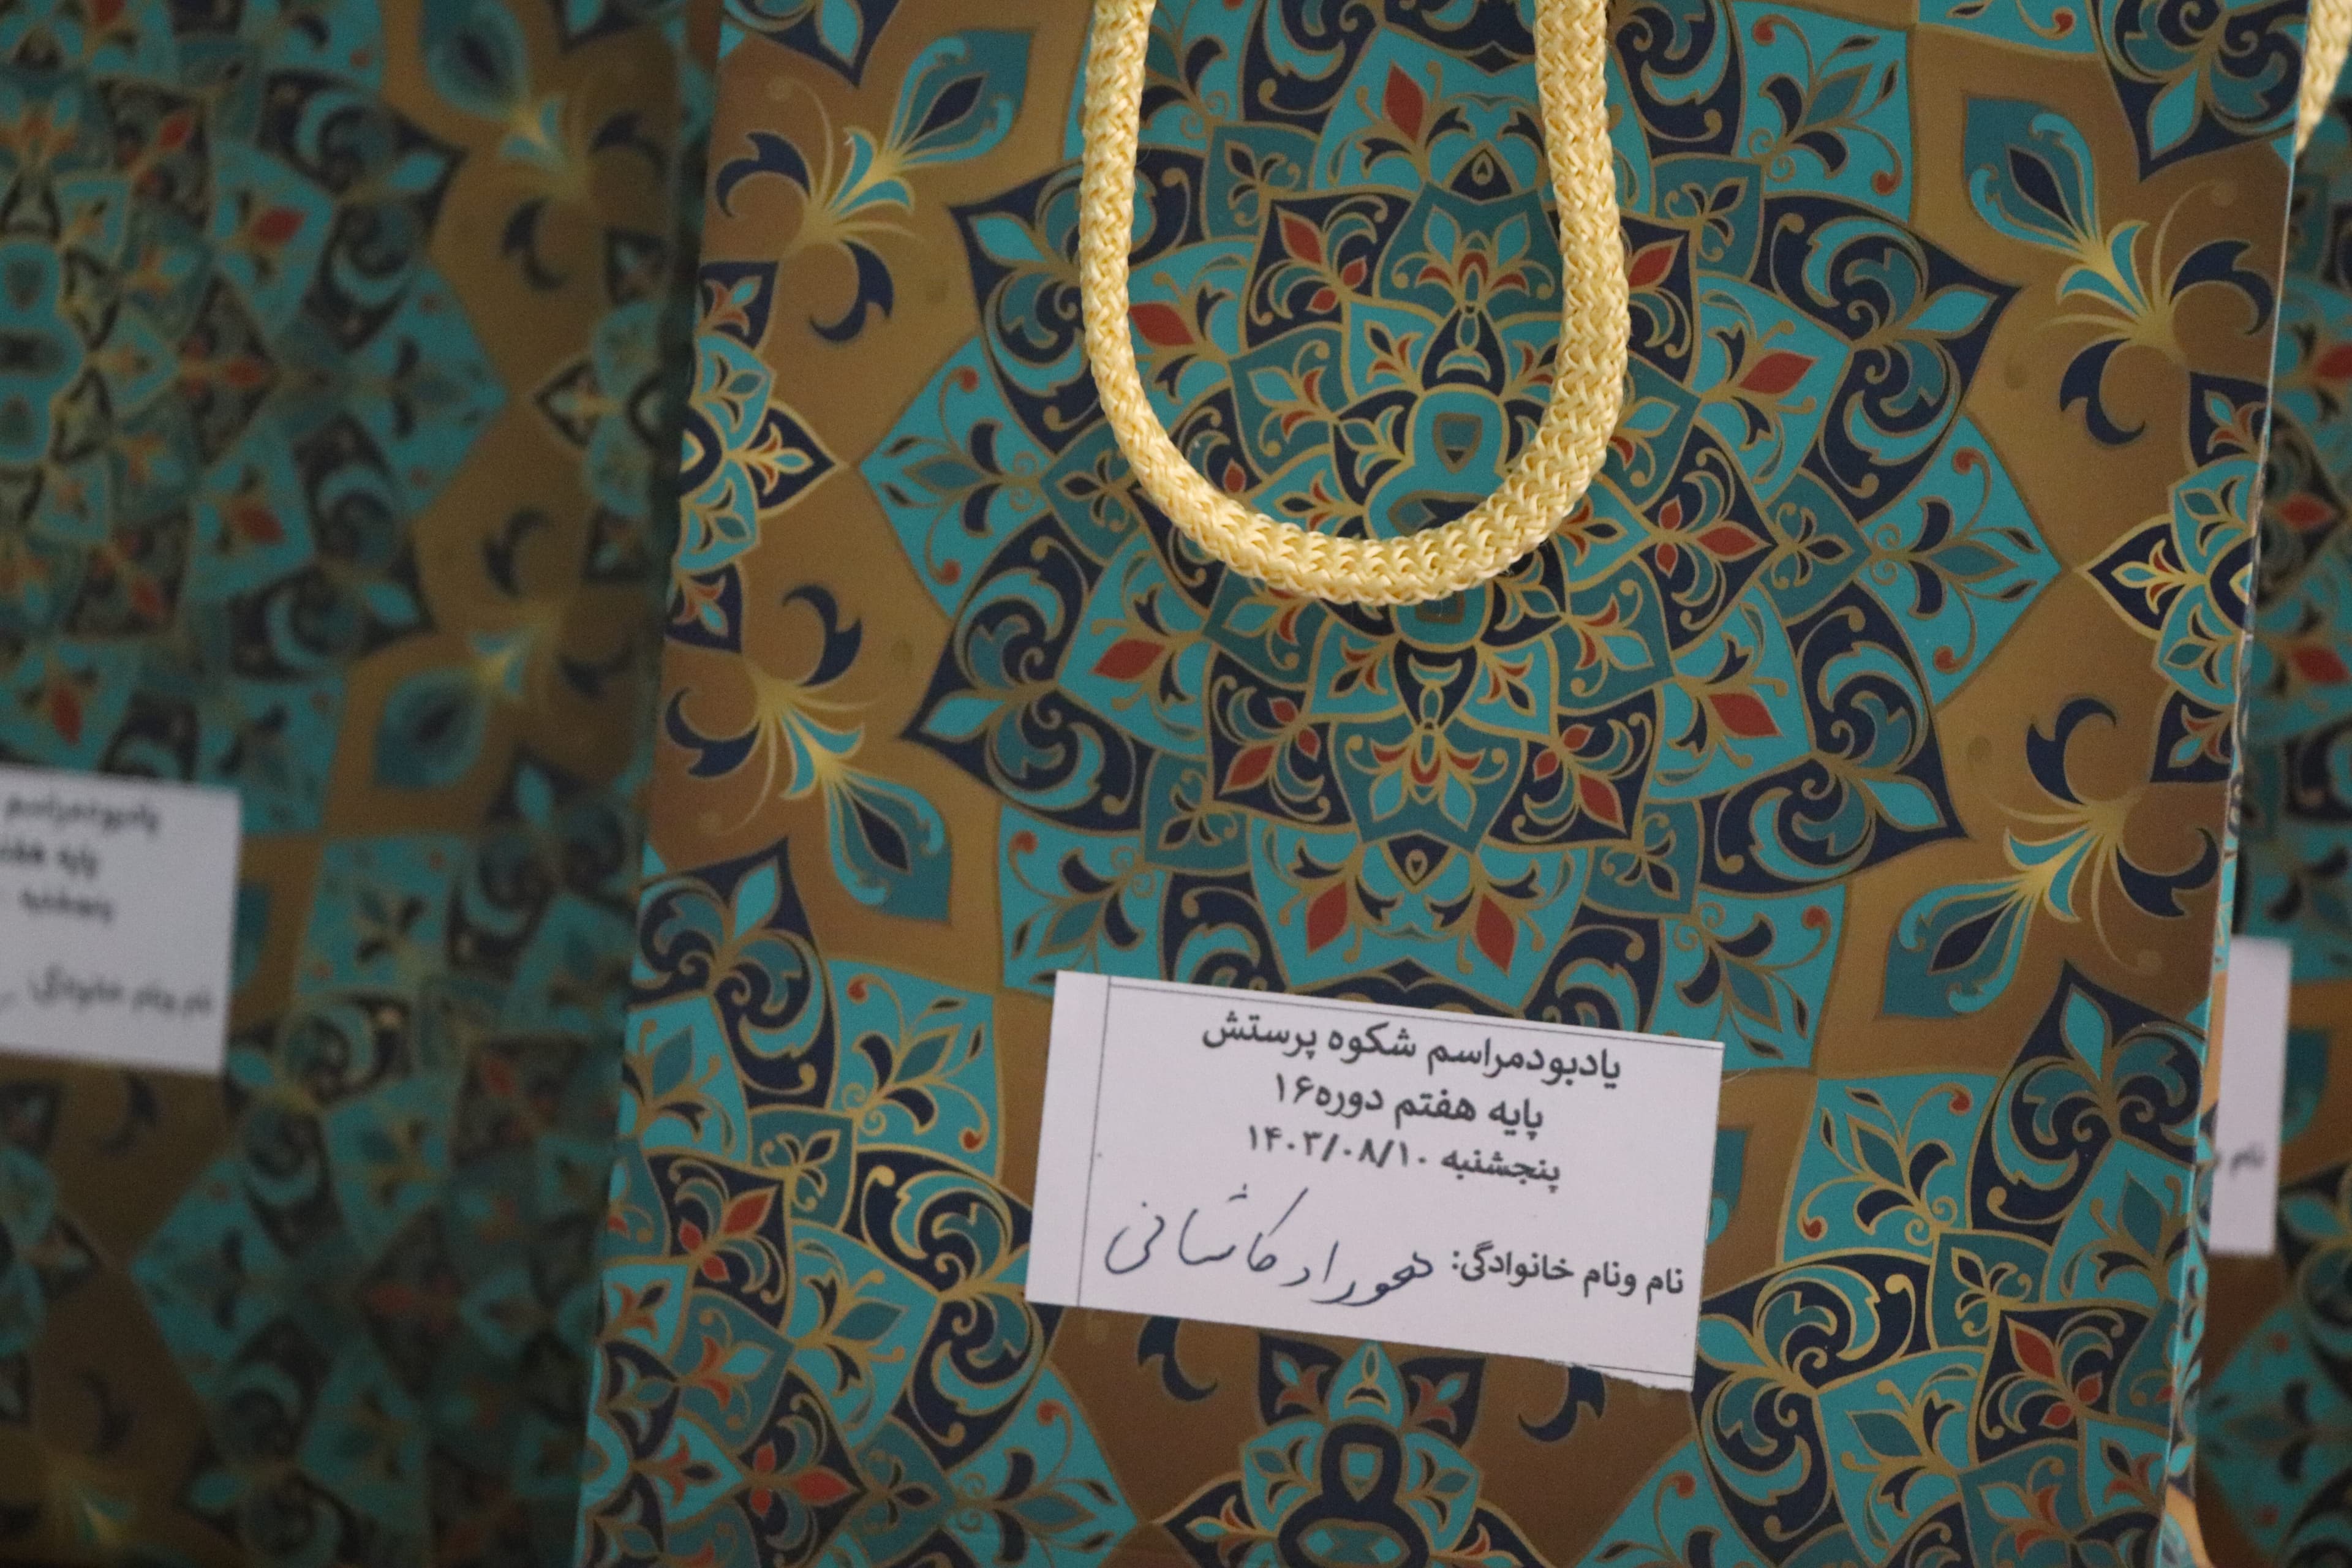 یادبودمراسم شکوه پرستش
پایه هفتم دوره۱۶
پنجشنبه ۱۴۰۳/۰۸/۱۰
نام ونام خانوادگی: مهراد کاشانی
یادبودمراسم
پایه هفت
پنجشنبه
نام ونام خانوادگی:
نام و